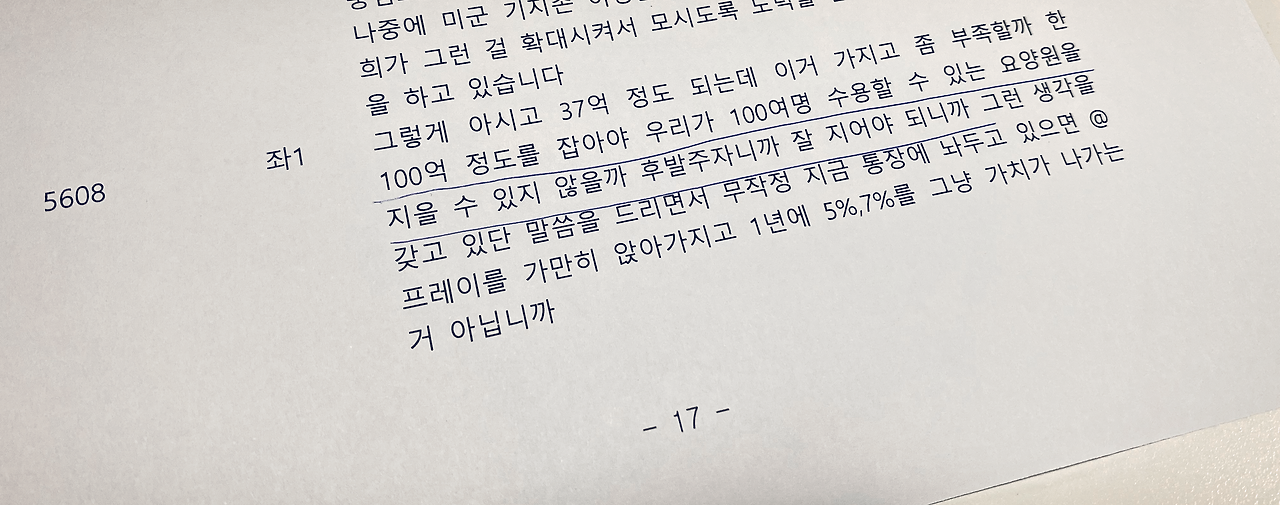 나중에 미군 기지촌
희가 그런 걸 확대시켜서 모시도록
을 하고 있습니다
5608 좌1 그렇게 아시고 37억 정도 되는데 이거 가지고 좀 부족할까 한
100억 정도를 잡아야 우리가 100여명 수용할 수 있는 요양원을
지을 수 있지 않을까 후발주자니까 잘 지어야 되니까 그런 생각을
갖고 있단 말씀을 드리면서 무작정 지금 통장에 놔두고 있으면 @
프레이를 가만히 앉아가지고 1년에 5%,7%를 그냥 가치가 나가는
거 아닙니까
- 17 -